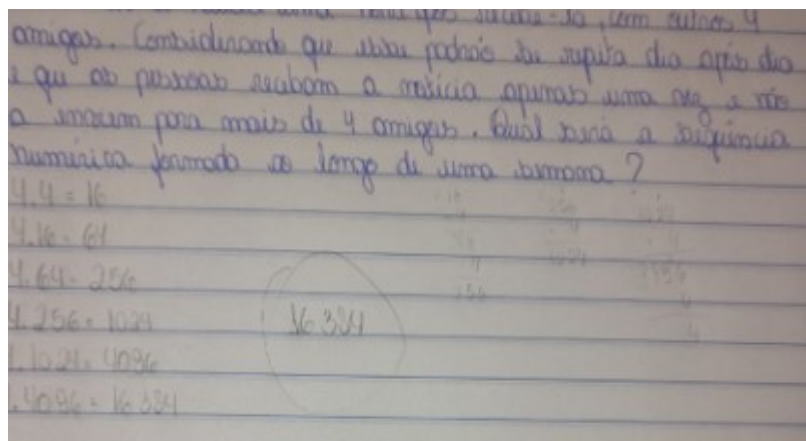 com outros 4
amigos. Considerando que esse padrão se repita dia após dia
e que as pessoas recebam a notícia apenas uma vez e não
a enviem para mais de 4 amigos. Qual seria a sequência
numérica formada ao longo de uma semana?
4.4 = 16
4.16 = 64
4.64 = 256
4.256 = 1024
.1024 = 4096
.4096 = 16384
16384